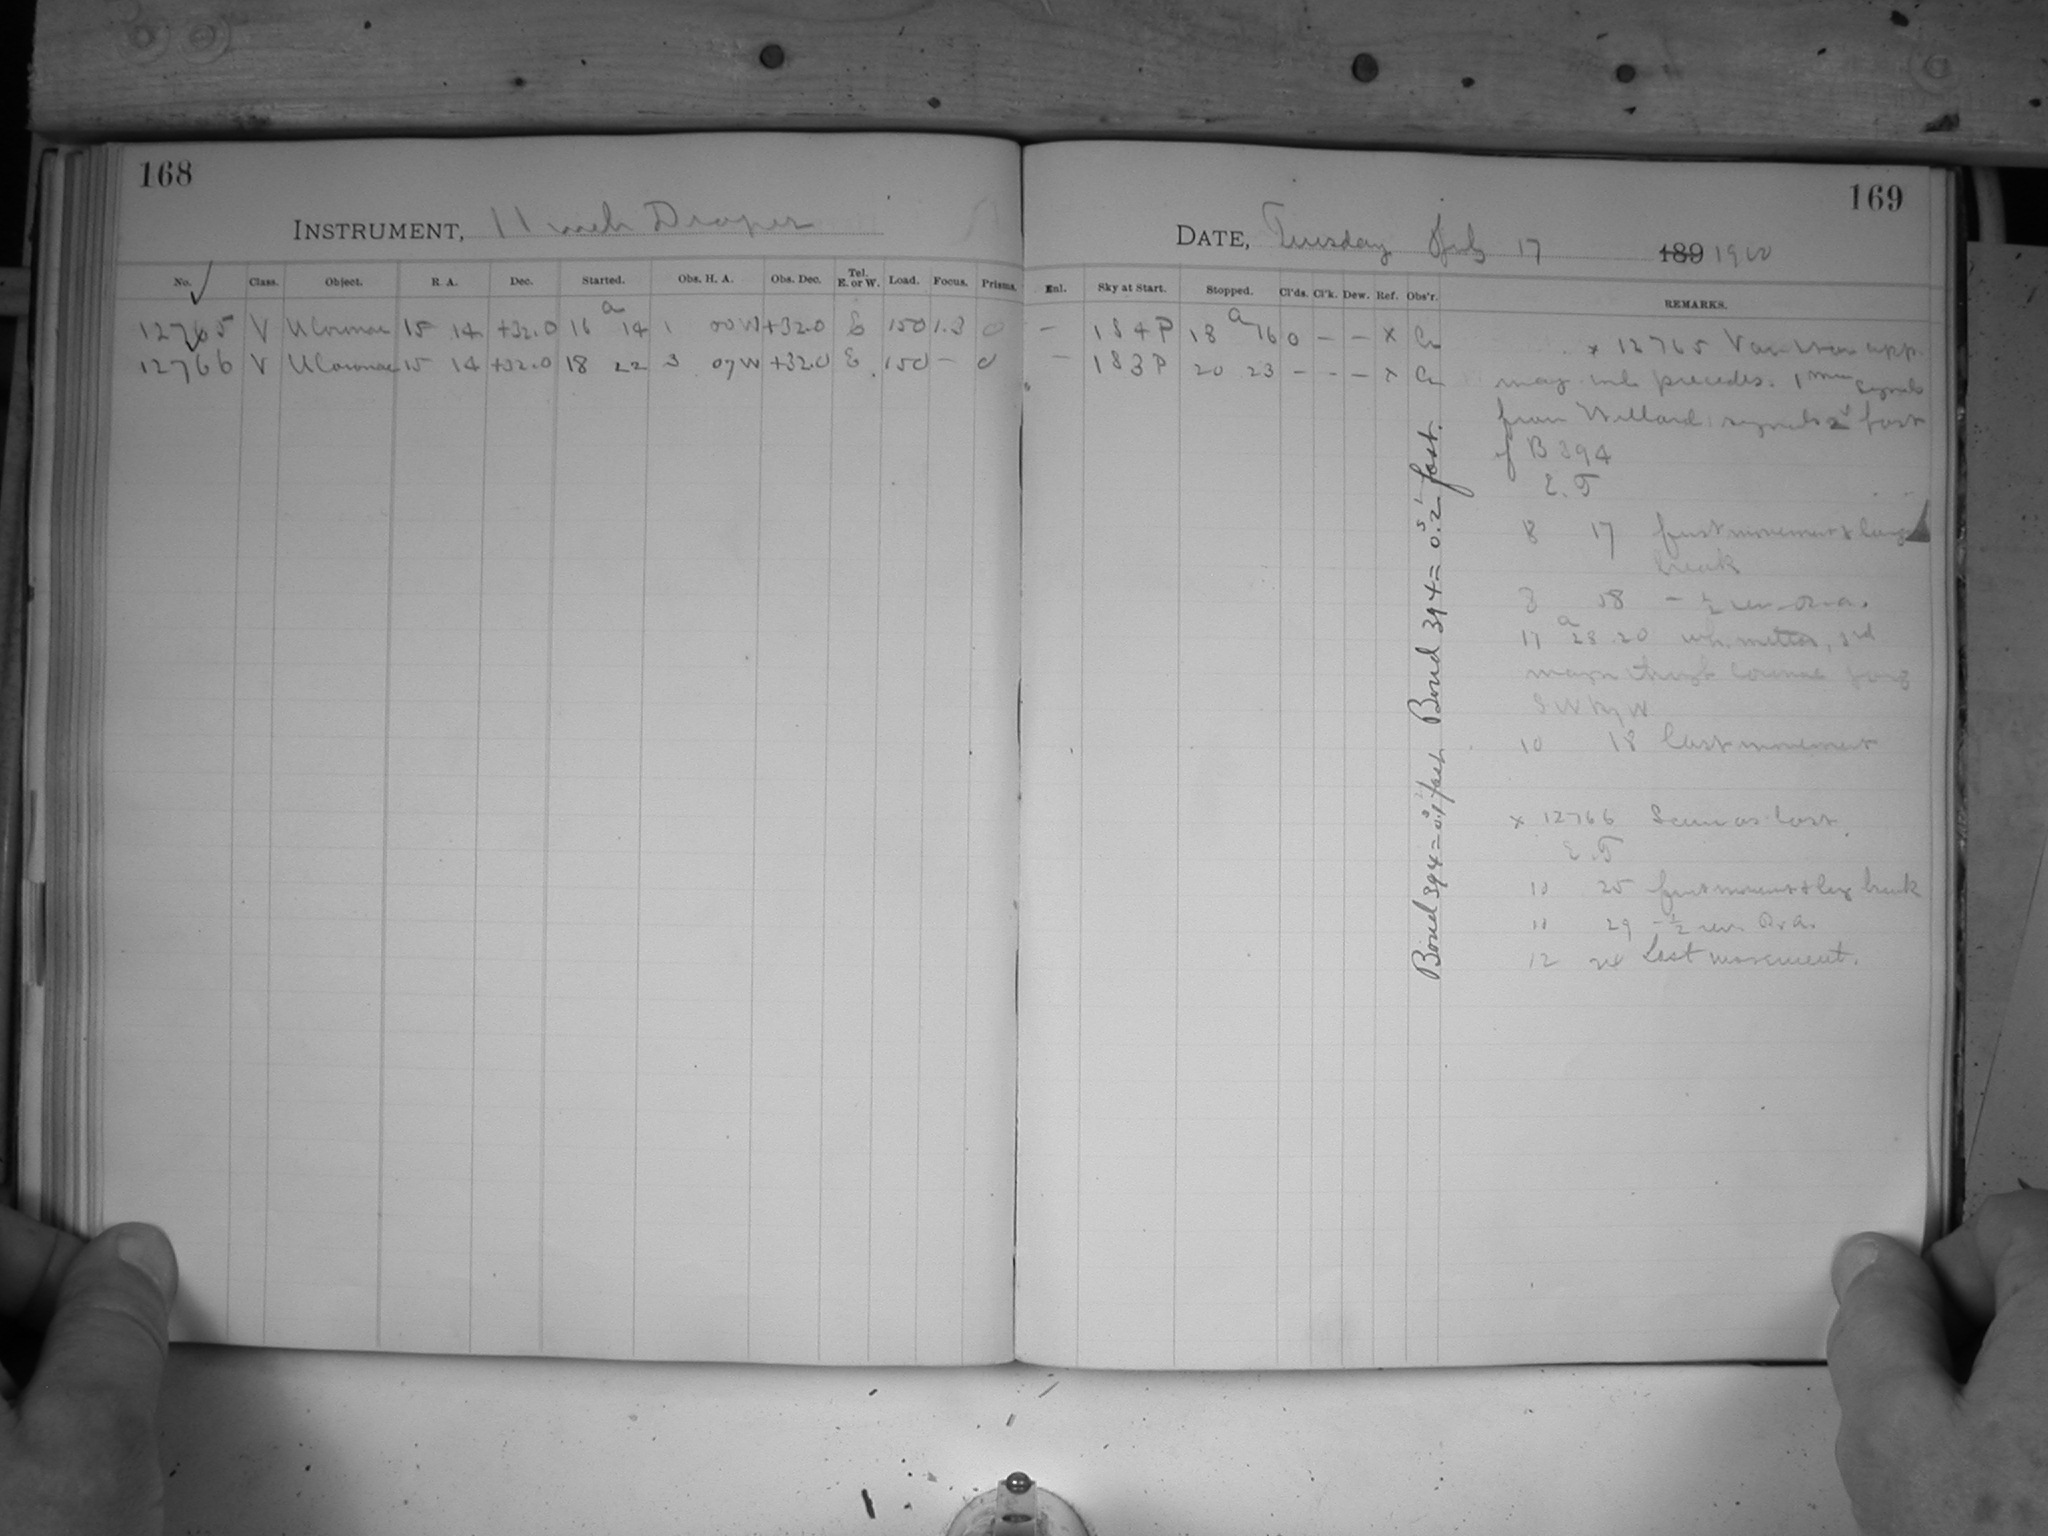 168
INSTRUMENT, 11 inch Draper
No. Class. Object. R. A. Dec. Started. Obs. H. A. Obs. Dec. Tel. E. or W. Load. Focus. Prisms.
12765 V U Coronae 15 14 +32.0 16 a 14 1 00 W +32.0 E 150 1.3 0
12766 V U Coronae 15 14 +32.0 18 22 3 07 W +32.0 E 150 - 0
169
DATE, Tuesday July 17 189 1900
Enl. Sky at Start. Stopped. Cl'ds. Cl'k. Dew. Ref. Obs'r. REMARKS.
- 184 P 18 a 16 0 - - x
- 183 P 20 23 - - - x
x 12765 app.
precedes. 1 min signals
from Willard signals 2s fast
of B 394
E. T
8 17 first movement & long
break
8 18 - ½ rev. R. a.
17 a 28 20 3rd
magn Coronae going
S W by W
10 18 last movement
x 12766 Same as last.
E. T
10 25 first movement & long break
10 29 - ½ rev. R. a.
12 24 Last movement.
Bond 394 = 0.s1 fast Bond 394 = 0.s2 fast.